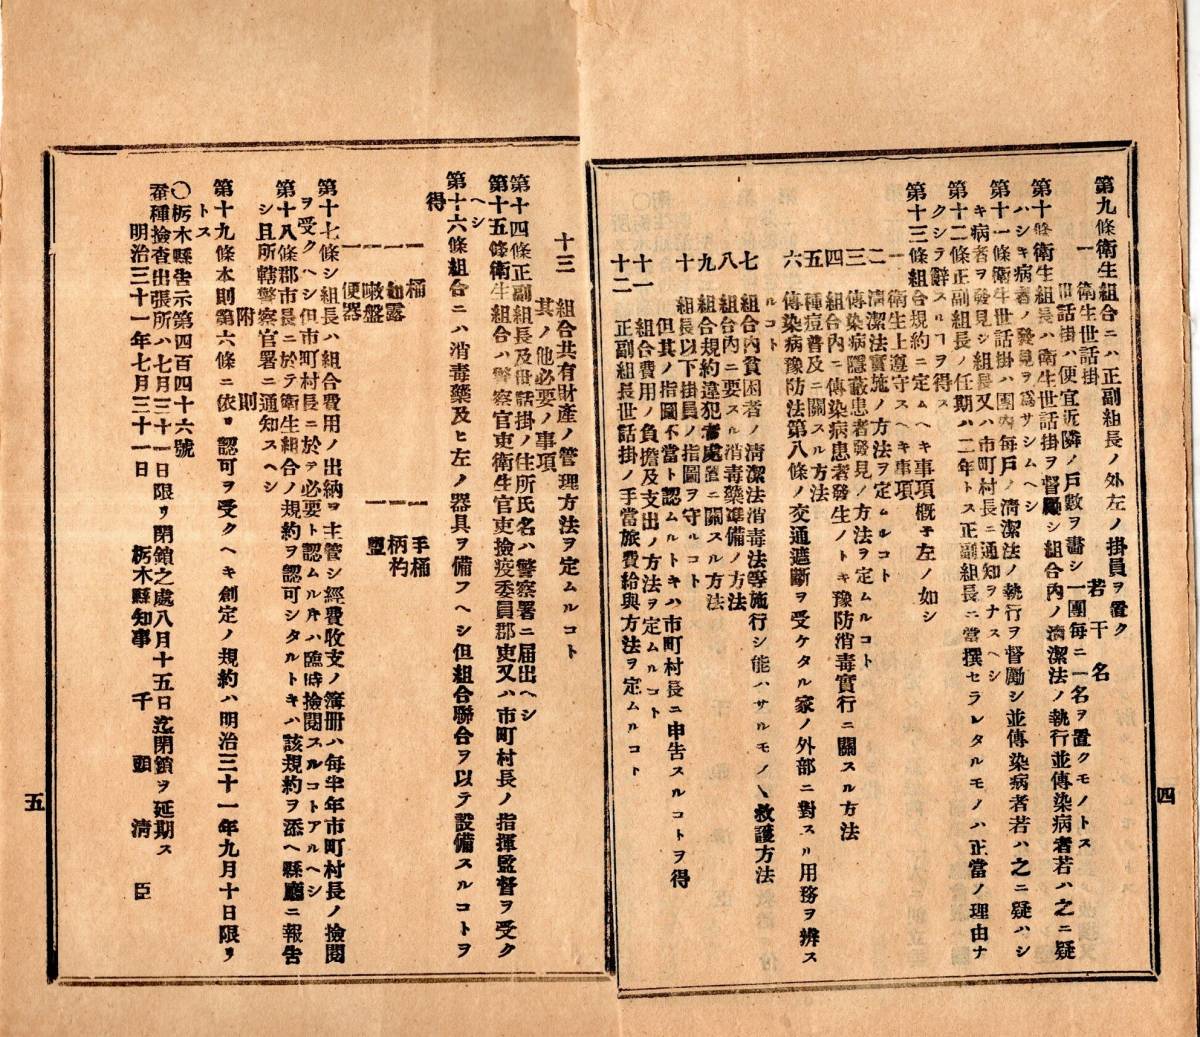 四
第九條衛生組合ニハ正副組長ノ外左ノ掛員ヲ置ク
一 衛生世話掛 若干名
世話掛ハ便宜近隣ノ戸數ヲ畵シ一團毎ニ一名ヲ置クモノトス
第十條衛生組長ハ衛生世話掛ヲ督勵シ組合内ノ清潔法ノ執行並傳染病者若ハ之ニ疑
ハシキ病者ノ發見ヲ爲サシムヘシ
第十一條衛生世話掛ハ團内毎戸ノ清潔法ノ執行ヲ督勵シ並傳染病者若ハ之ニ疑ハシ
キ病者ヲ發見シ組長又ハ市町村長ニ通知ヲナスヘシ
第十二條正副組長ノ任期ハ二年トス正副組長ニ當撰セラレタルモノハ正當ノ理由ナ
クシテ辭スルヿヲ得ス
第十三條組合規約ニ定ムヘキ事項概子左ノ如シ
一 衛生上遵守スヘキ事項
二 清潔法實施ノ方法ヲ定ムルコト
三 傳染病隱蔽患者發見ノ方法ヲ定ムルコト
四 組合内ニ傳染病患者發生ノトキ豫防消毒實行ニ關スル方法
五 種痘普及ニ關スル方法
六 傳染病豫防法第八條ノ交通遮斷ヲ受ケタル家ノ外部ニ對スル用務ヲ辨ス
ルコト
七 組合内貧困者ノ清潔法消毒法等施行シ能ハサルモノヽ救護方法
八 組合内ニ要スル消毒藥準備ノ方法
九 組合規約違犯者處置ニ關スル方法
十 組長以下掛員ノ指圖ヲ守ルコト
但其ノ指圖不當ト認ムルトキハ市町村長ニ申告スルコトヲ得
十一 組合費用ノ負擔及支出ノ方法ヲ定ムルコト
十二 正副組長世話掛ノ手當旅費給與方法ヲ定ムルコト
十三 組合共有財産ノ管理方法ヲ定ムルコト
其ノ他必要ノ事項
第十四條正副組長及世話掛ノ住所氏名ハ警察署ニ届出ヘシ
第十五條衛生組合ハ警察官吏衛生官吏檢疫委員郡吏又ハ市町村長ノ指揮監督ヲ受ク
ヘシ
第十六條組合ニハ消毒藥及ヒ左ノ器具ヲ備フヘシ但組合聯合ヲ以テ設備スルコトヲ
得
一 桶 一 手桶
一 如露 一 柄杓
一 噉盤 一 盥
一 便器
第十七條シ組長ハ組合費用ノ出納ヲ主管シ經費收支ノ簿册ハ毎半年市町村長ノ檢閲
ヲ受クヘシ但市町村長ニ於テ必要ト認ムルトキハ臨時檢閲スルコトアルヘシ
第十八條郡市長ニ於テ衛生組合ノ規約ヲ認可シタルトキハ該規約ヲ添ヘ縣廳ニ報告
シ且所轄警察官署ニ通知スヘシ
附則
第十九條本則第六條ニ依リ認可ヲ受クヘキ創定ノ規約ハ明治三十一年九月十日限リ
トス
〇栃木縣告示第四百四十六號
蚕種檢査出張所ハ七月三十一日限リ閉鎖之處八月十五日迄閉鎖ヲ延期ス
明治三十一年七月三十一日 栃木縣知事 千頭清臣
五